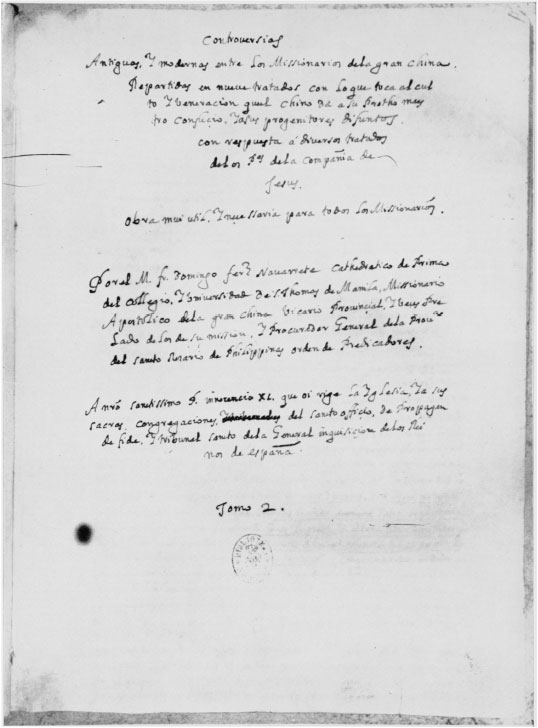 Controversias
Antiguas, Y modernas entre los Missionarios de la gran China.
Repartidas en nueve tratados con lo que toca al cul
to Y veneracion quel Chino da a su Protho maes
tro Confucio, Y a sus progenitores difuntos,
con respuesta á diversos tratados
de los Ps de la Compañia de
Jesus.
Obra mui util, Y necessaria para todos los Missionarios.
Por el M. fr. Domingo ferz Navarrete Cathedratico de Prima
del Collegio, Y Universidad de S. Thomas de Manila, Missionario
Apostolico de la gran China Vicario Provincial, Y Pre
lado de los de su mission, Y Procurador General de la Prova
del santo Rosario de Philippinas orden de Predicadores.
A nro santissimo P. innocencio XI. que oi rige la Yglesia, Y a sus
sacras congregaciones, del santo officio, de Propagan
da fide, Y tribunal santo de la General inquisicion de los Rei
nos de españa.
Tomo 2.